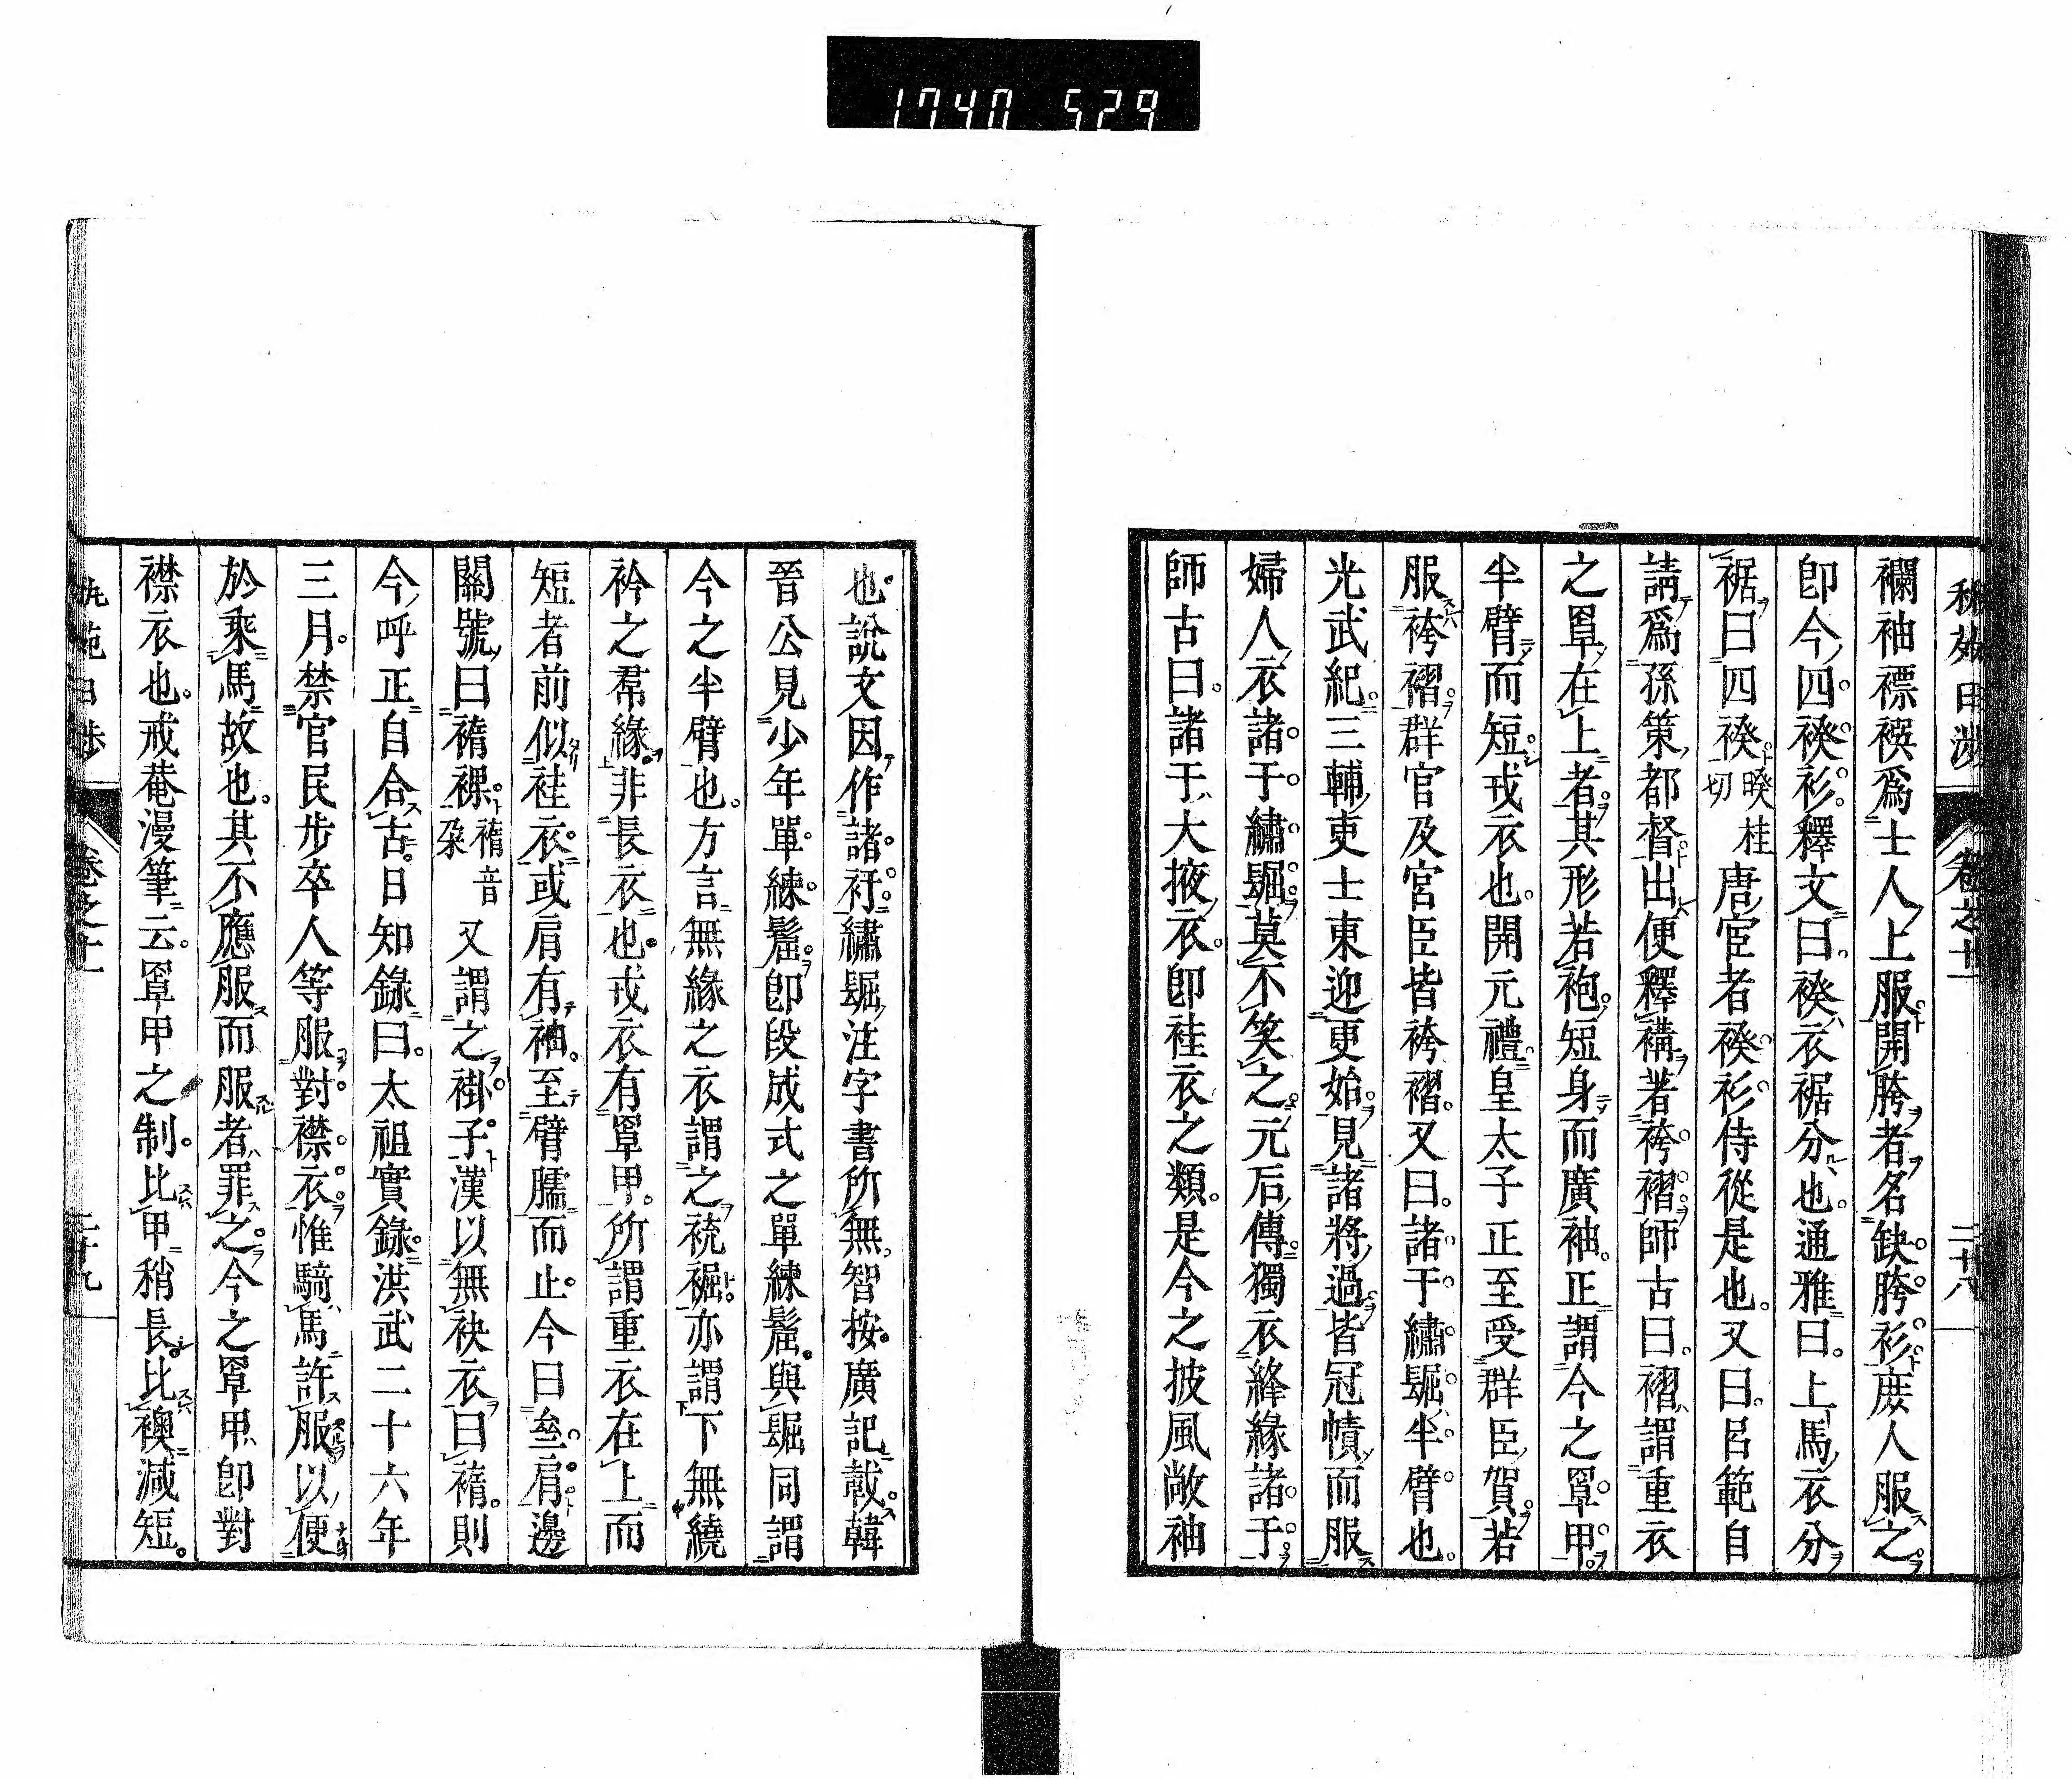 1740 529
秇苑日渉 卷之十一 二十八
襴袖褾襈爲士人上服開胯者名缺胯衫庶人服之
卽今四䙆衫釋文曰䙆衣裾分也通雅曰上馬衣分
裾曰四䙆睽桂切唐宦者䙆衫侍從是也又曰呂範自
請爲孫策都督出便釋褠著袴褶師古曰褶謂重衣
之罩在上者其形若袍短身而廣袖正謂今之罩甲
半臂而短戎衣也開元禮皇太子正至受群臣賀若
服袴褶群官及宮臣皆袴褶又曰諸于繡䘿半臂也
光武紀三輔吏士東迎更始見諸將過皆冠幘而服
婦人衣諸于繡䘿莫不笑之元后傳獨衣絳緣諸于
師古曰諸于大掖衣卽袿衣之類是今之披風敞袖
也說文因作諸衧繡䘿注字書所無智按廣記載韓
晉公見少年單練䯰卽段成式之單練䯰與䘿同謂
今之半臂也方言無緣之衣謂之裗裾亦謂下無繞
衿之帬緣非長衣也戎衣有罩甲所謂重衣在上而
短者前似袿衣或肩有袖至臂臑而止今曰坌肩邊
關號曰褙裸褙音朶又謂之褂子漢以無袂衣曰褙則
今呼正自合古日知錄曰太祖實錄洪武二十六年
三月禁官民步卒人等服對襟衣惟騎馬許服以便
於乘馬故也其不應服而服者罪之今之罩甲卽對
襟衣也戒菴漫筆云罩甲之制比甲稍長比襖減短
秇苑日渉 卷之十一 二十九